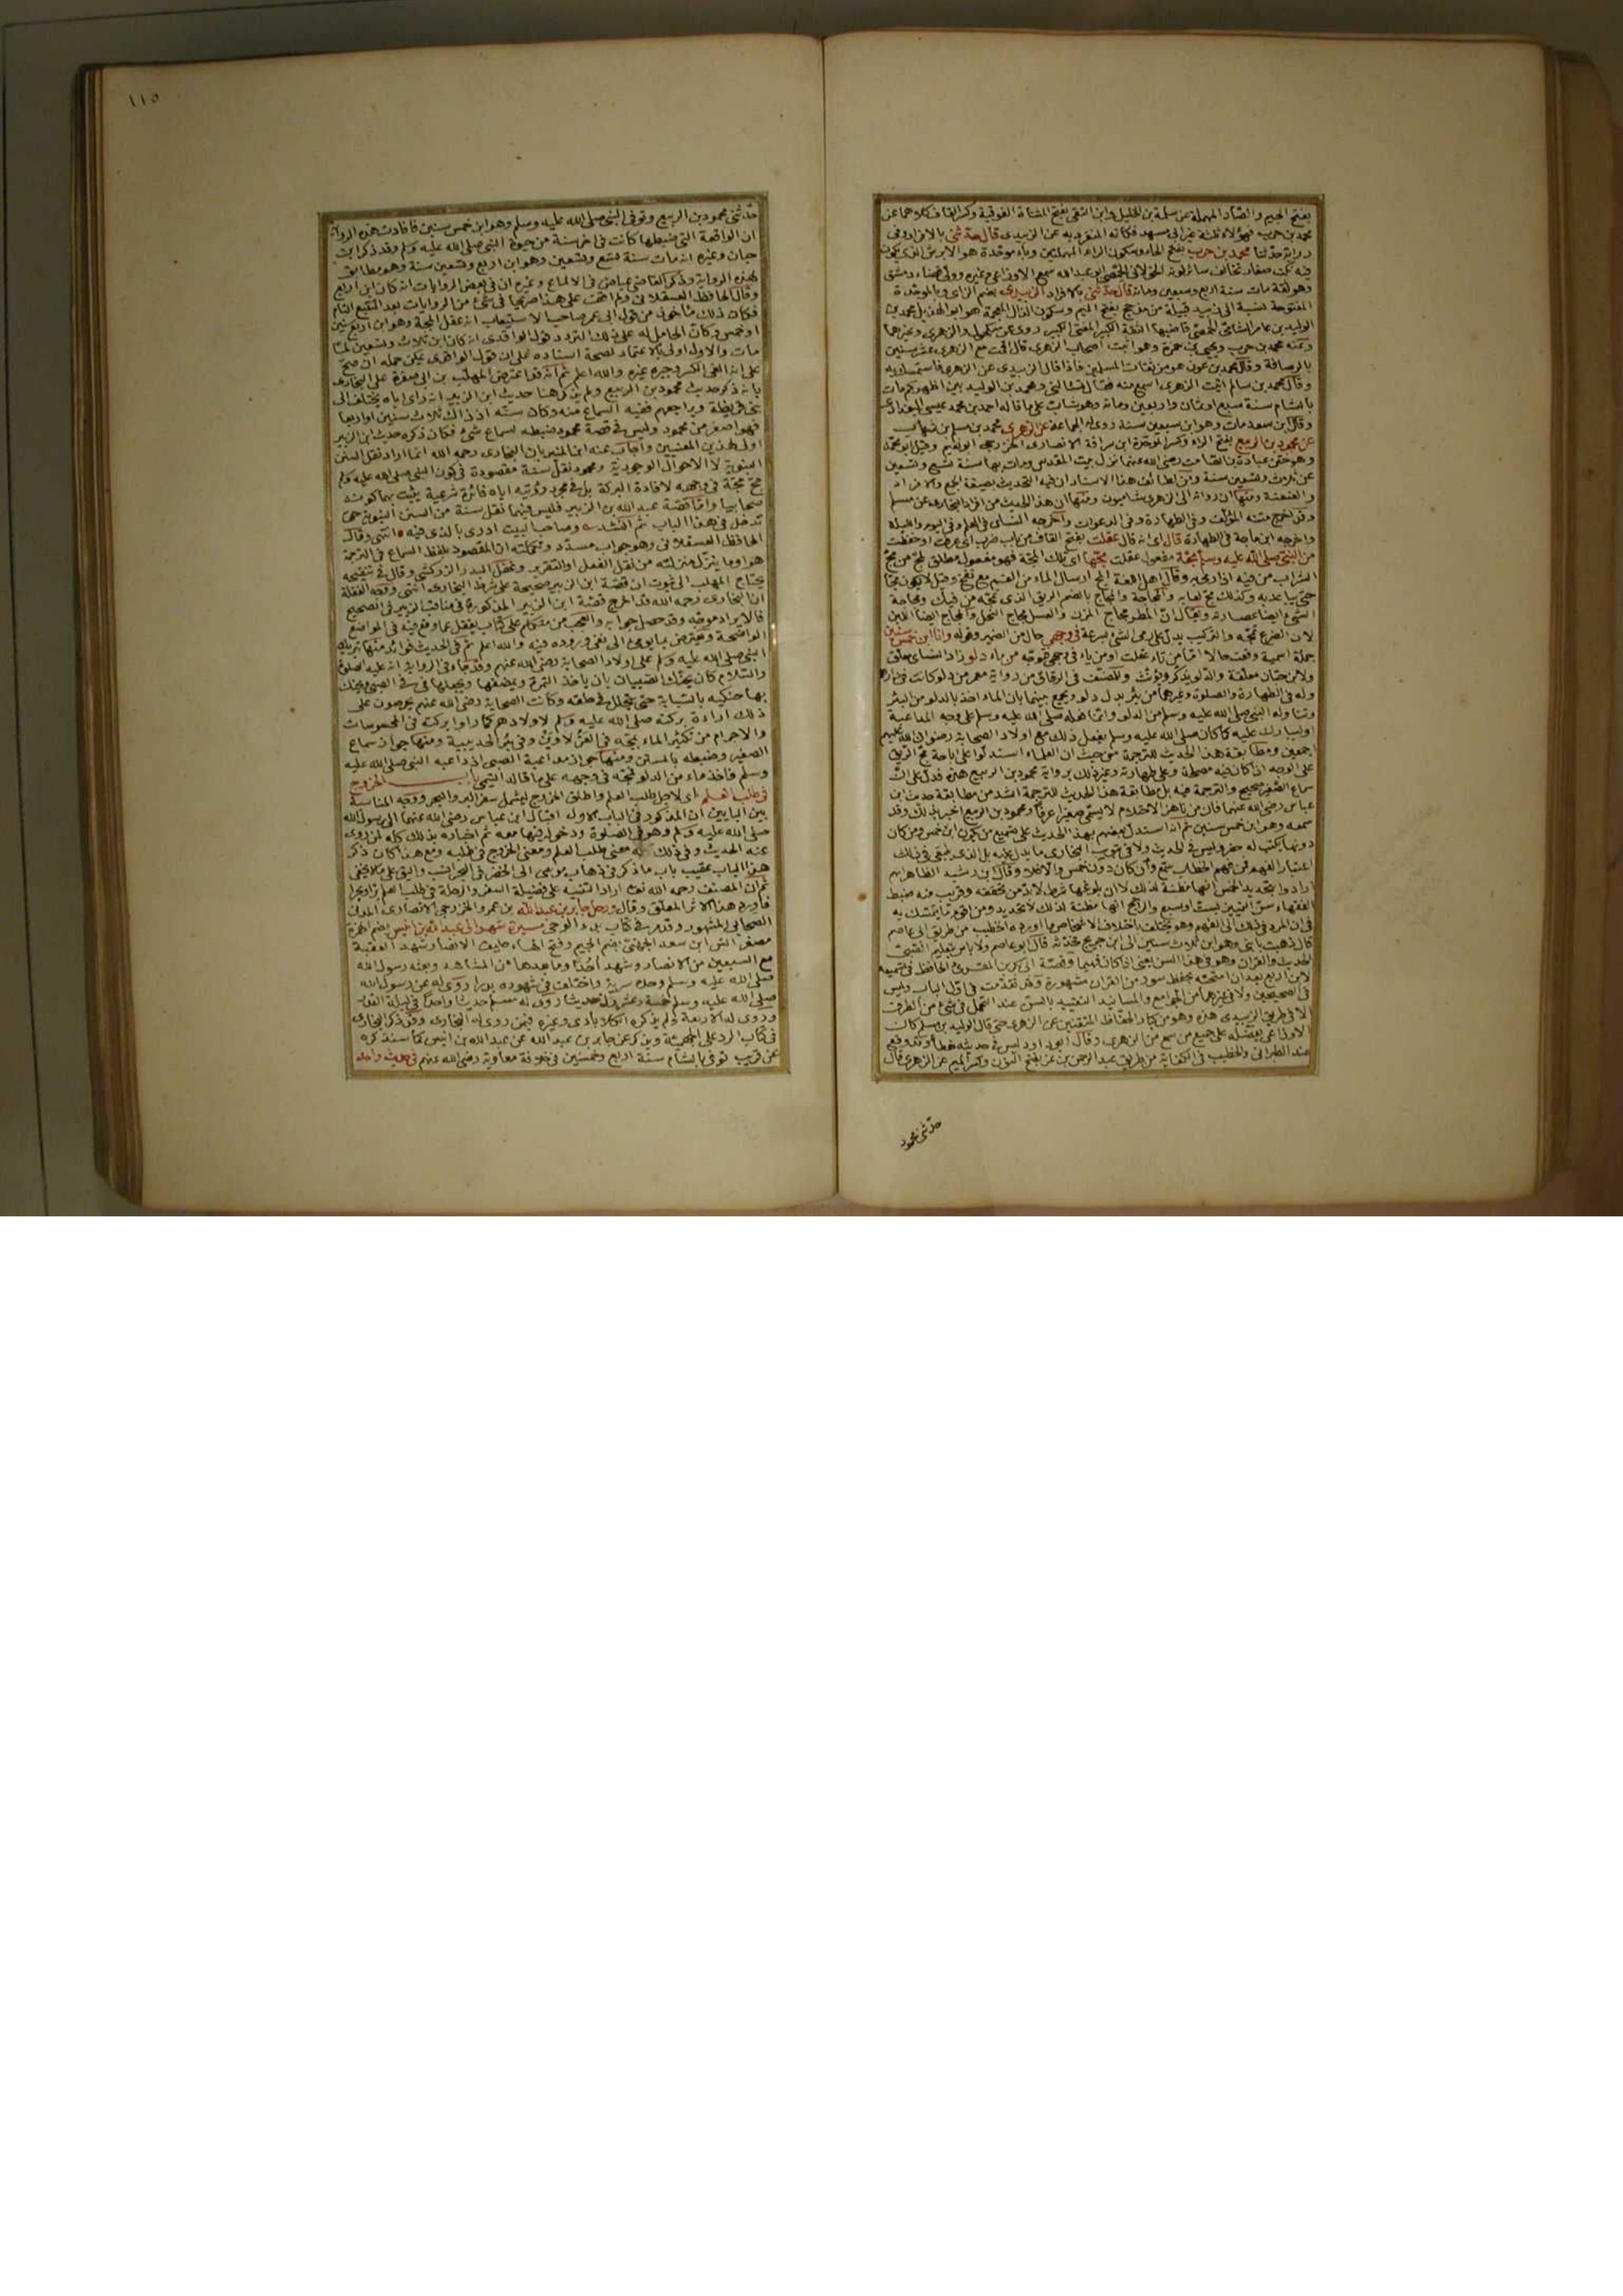 بفتح الجيم والصاد المهملة عن سلمة بن الخليل وابن التقى بفتح المثناة الفوقية وكسر القاف كلاهما عن
محمد بن حرب فهؤلاء ثلثة غير ابى مسهر فكانه المنفرد به عن الزبيدى قال حدثنى بالافراد وفى
رواية حدثنا محمد بن حرب بفتح الحاء وسكون الراء المهملتين وباء موحدة هو الابرش الذى يكون
فيه نكت صغار تخالف سائر لونه الخولانى الحمصى ابو عبد الله سمع الاوزاعى وغيره وولى قضاء دمشق
وهو ثقة مات سنة اربع وتسعين ومائة قال حدثنى بالافراد الزبيدى بضم الزاى وبالموحدة
المفتوحة نسبة الى زبيد قبيلة من مذحج بفتح الميم وسكون الذال المعجمة هو ابو الهذيل محمد بن
الوليد بن عامر الشامى الحمصى قاضيها الثقة الكبير المفتى الكبير روى عن مكحول والزهرى وغيرهما
وعنه محمد بن حرب ويحيى بن حمزة وهو اثبت اصحاب الزهرى قال اقمت مع الزهرى عشر سنين
بالرصافة وقال محمد بن عون هو من ثقات المسلمين فاذا قال الزبيدى عن الزهرى فاستمسك به
وقال محمد بن سالم اتيت الزهرى اسمع منه فقال تسالنى ومحمد بن الوليد بين اظهركم مات
بالشام سنة سبع او ثمان واربعين ومائة وهو شاب على ما قاله احمد بن محمد بن عيسى البغدادى
وقال ابن سعد مات وهو ابن سبعين سنة روى له الجماعة عن الزهرى محمد بن مسلم بن شهاب
عن محمود بن الربيع بفتح الراء وكسر الموحدة ابن سراقة الانصارى الخزرجى ابو نعيم وقيل ابو محمد
وهو ختن عبادة بن الصامت رضى الله عنهما نزل بيت المقدس ومات بها سنة تسع وتسعين
عن ثلاث وتسعين سنة ومن لطائف هذا الاسناد ان فيه التحديث بصيغة الجمع والافراد
والعنعنة ومنها ان رواته الى الزهرى شاميون ومنها ان هذا الحديث من افراد البخارى عن مسلم
وقد اخرج متنه المؤلف فى الطهارة وفى الدعوات واخرجه النسائى فى العلم وفى اليوم والليلة
واخرجه ابن ماجة فى الطهارة قال اى انه قال عقلت بفتح القاف من باب ضرب اى عرفت او حفظت
من النبى صلى الله عليه وسلم مجة مفعول عقلت مجها اى تلك المجة فهو مفعول مطلق لمج من مج
الشراب من فيه اذا رمى به وقال اهل اللغة المج ارسال الماء من الفم مع نفخ وقيل لا يكون مجا
حتى يباعد به وكذلك مج لعابه والمجاجة والمجاج بالضم الريق الذى تمجه من فيك ومجاجة
الشىء ايضا عصارته ويقال ان المطر مجاج المزن والعسل مجاج النحل والمجاج ايضا اللبن
لان الضرع تمجه والتركيب يدل على رمى الشىء بسرعة فى وجهى حال من الضمير وقوله وانا ابن خمس سنين
جملة اسمية وقعت حالا اما من تاء عقلت او من ياء فى وجهى قوله من ماء دلو زاد النسائى معلق
ولابن حبان معلقة والدلو يذكر ويؤنث وللمصنف فى الرقاق من رواية معمر من دلو كانت فى دارهم
وله فى الطهارة والصلوة وغيرهما من بئر بدل دلو ويجمع بينهما بان الماء اخذ بالدلو من البئر
وتناوله النبى صلى الله عليه وسلم من الدلو وانما فعله صلى الله عليه وسلم على وجه المداعبة
او ليبارك عليه كما كان صلى الله عليه وسلم يفعل ذلك مع اولاد الصحابة رضوان الله عليهم
اجمعين ومطابقة هذا الحديث للترجمة من حيث ان العلماء استدلوا على اباحة مج الريق
على الوجه اذا كان فيه مصلحة وعلى طهارته وغير ذلك برواية محمود بن الربيع هذه فدل على ان
سماع الصغير صحيح والترجمة فيه بل مطابقة هذا الحديث للترجمة اشد من مطابقة حديث ابن
عباس رضى الله عنهما فان من ناهز الاحتلام لا يسمى صغيرا عرفا ومحمود بن الربيع اخبر بذلك وقد
سمعه وهو ابن خمس سنين ثم انه استدل بعضهم بهذا الحديث على تسميع من يكون ابن خمس ومن كان
دونها يكتب له حضر وليس فى الحديث ولا فى تبويب البخارى ما يدل عليه بل الذى ينبغى فى ذلك
اعتبار الفهم فمن فهم الخطاب سمع وان كان دون خمس والا فلا وقال ابن رشيد الظاهر انهم
ارادوا بتحديد الخمس انها مظنة لذلك لا ان بلوغها شرط لا بد من تحققه وقريب منه ضبط
الفقهاء سن التمييز بست او سبع والراجح انها مظنة لذلك لا تحديد ومن اقوى ما يتمسك به
فى ان المرد فى ذلك الى الفهم وهو يختلف باختلاف الاشخاص ما اورده الخطيب من طريق ابى عاصم
قال ذهبت بابنى وهو ابن ثلاث سنين الى ابن جريج فحدثه قال ابو عاصم ولا باس بتعليم الصبى
الحديث والقران وهو فى هذا السن يعنى اذا كان فهيما وقصة ابى بكر بن المقرى الحافظ فى تسميعه
لابن اربع بعد ان امتحنه بحفظ سور من القران مشهورة وقد تقدمت فى اول الباب وليس
فى الصحيحين ولا فى غيرهما من الجوامع والمسانيد التقييد بالسن عند التحمل فى شىء من الطرق
الا فى طريق الزبيدى هذه وهو من كبار الحفاظ المتقنين عن الزهرى حتى قال الوليد بن مسلم كان
الاوزاعى يفضله على جميع من سمع من الزهرى وقال ابو داود ليس فى حديثه خطأ وقد وقع
عند الطبرانى والخطيب فى الكفاية من طريق عبد الرحمن بن نمر بفتح النون وكسر الميم عن الزهرى قال
حدثنى محمود
١١٥
حدثنى محمود بن الربيع وتوفى النبى صلى الله عليه وسلم وهو ابن خمس سنين فافادت هذه الرواية
ان الواقعة التى ضبطها كانت فى اخر سنة من حيوة النبى صلى الله عليه وسلم وقد ذكر ابن
حبان وغيره انه مات سنة تسع وتسعين وهو ابن اربع وتسعين سنة وهو مطابق
لهذه الرواية وذكر القاضى عياض فى الالماع وغيره ان فى بعض الروايات انه كان ابن اربع
وقال الحافظ العسقلانى ولم اقف على هذا صريحا فى شىء من الروايات بعد التتبع التام
فكان ذلك ماخوذ من قول ابى عمر صاحب الاستيعاب انه عقل المجة وهو ابن اربع سنين
او خمس وكان الحامل له على ذلك التردد قول الواقدى انه كان ابن ثلاث وتسعين لما
مات والاول اولى بالاعتماد لصحة اسناده على ان قول الواقدى يمكن حمله ان صح
على انه الغى الكسر وجبره غيره والله اعلم ثم انه قد اعترض المهلب بن ابى صفرة على البخارى
بانه ذكر حديث محمود بن الربيع ولم يذكر هنا حديث ابن الزبير انه راى اباه يختلف الى
بنى قريظة ويراجعهم ففيه السماع منه وكان سنه اذ ذاك ثلاث سنين او اربعا
فهو اصغر من محمود وليس فى قصة محمود ضبطه لسماع شىء فكان ذكره حديث ابن الزبير
اولى لهذين المعنيين واجاب عنه ابن المنير بان البخارى رحمه الله انما اراد نقل السنن
النبوية لا الاحوال الوجودية ومحمود نقل سنة مقصودة فى كون النبى صلى الله عليه وسلم
مج مجة فى وجهه لافادة البركة بل فى مجرد رؤيته اياه فائدة شرعية يثبت بها كونه
صحابيا واما قصة عبد الله بن الزبير فليس فيها نقل سنة من السنن النبوية حتى
تدخل فى هذا الباب ثم انشد وصاحب البيت ادرى بالذى فيه انتهى وقال
الحافظ العسقلانى وهو جواب مسدد وتكملته ان المقصود بلفظ السماع فى الترجمة
هو او ما ينزل منزلته من نقل الفعل او التقرير وغفل البدر الزركشى وقال فى تنقيحه
يحتاج المهلب الى ثبوت ان قصة ابن الزبير صحيحة على شرط البخارى انتهى ووجه الغفلة
ان البخارى رحمه الله قد اخرج قصة ابن الزبير المذكورة فى مناقب الزبير فى الصحيح
فالايراد موجه وقد حصل جوابه والعجب من متكلم على كتاب يغفل عما وقع فيه فى المواضع
الواضحة ويعترض بما يومئ الى نفى وروده فيه والله اعلم ثم فى الحديث فوائد منها تبريك
النبى صلى الله عليه وسلم على اولاد الصحابة رضى الله عنهم وقد جاء فى الرواية انه عليه الصلوة
والسلام كان يحنك الصبيان بان ياخذ التمرة ويمضغها ويجعلها فى فى الصبى ويحنك
بها حنكيه بالسبابة حتى يتحلل فى حلقه وكانت الصحابة رضى الله عنهم يحرصون على
ذلك ارادة بركته صلى الله عليه وسلم لاولادهم كما راوا بركته فى المحسوسات
والاجرام من تكثير الماء بمجه فى المزادتين وفى بئر الحديبية ومنها جواز سماع
الصغير وضبطه بالسن ومنها جواز مداعبة الصبى اذ داعبه النبى صلى الله عليه
وسلم فاخذ ماء من الدلو فمجه فى وجهه على ما قاله التيمى باب الخروج
فى طلب العلم اى لاجل طلب العلم واطلق الخروج ليشمل سفر البر والبحر ووجه المناسبة
بين البابين ان المذكور فى الباب الاول اقبال ابن عباس رضى الله عنهما الى رسول الله
صلى الله عليه وسلم وهو فى الصلوة ودخوله فيها معه ثم اخباره بذلك كله لمن روى
عنه الحديث وفى ذلك كله معنى طلب العلم ومعنى الخروج فى طلبه ومع هذا كان ذكر
هذا الباب عقيب باب ما ذكر فى ذهاب موسى الى الخضر فى البحر انسب واليق على ما لا يخفى
ثم ان المصنف رحمه الله تعالى اراد التنبيه على فضيلة السفر والرحلة فى طلب العلم برا وبحرا
فاورد هذا الاثر المعلق وقال ورحل جابر بن عبد الله بن عمرو الخزرجى الانصارى المدنى
الصحابى المشهور وقد مر فى كتاب بدء الوحى مسيرة شهر الى عبد الله بن انيس بضم الهمزة
مصغر انس ابن سعد الجهنى بضم الجيم وفتح الهاء حليف الانصار شهد العقبة
مع السبعين من الانصار وشهد احدا وما بعدها من المشاهد وبعثه رسول الله
صلى الله عليه وسلم وحده سرية واختلف فى شهوده بدرا روى له عن رسول الله
صلى الله عليه وسلم خمسة وعشرون حديثا روى له مسلم حديثا واحدا فى ليلة القدر
وروى له الاربعة ولم يذكره الكلاباذى وغيره فيمن روى له البخارى وقد ذكر البخارى
فى كتاب الرد على الجهمية ويذكر عن جابر بن عبد الله عن عبد الله بن انيس كما سنذكره
عن قريب توفى بالشام سنة اربع وخمسين فى خلافة معاوية رضى الله عنهم فى حديث واحد